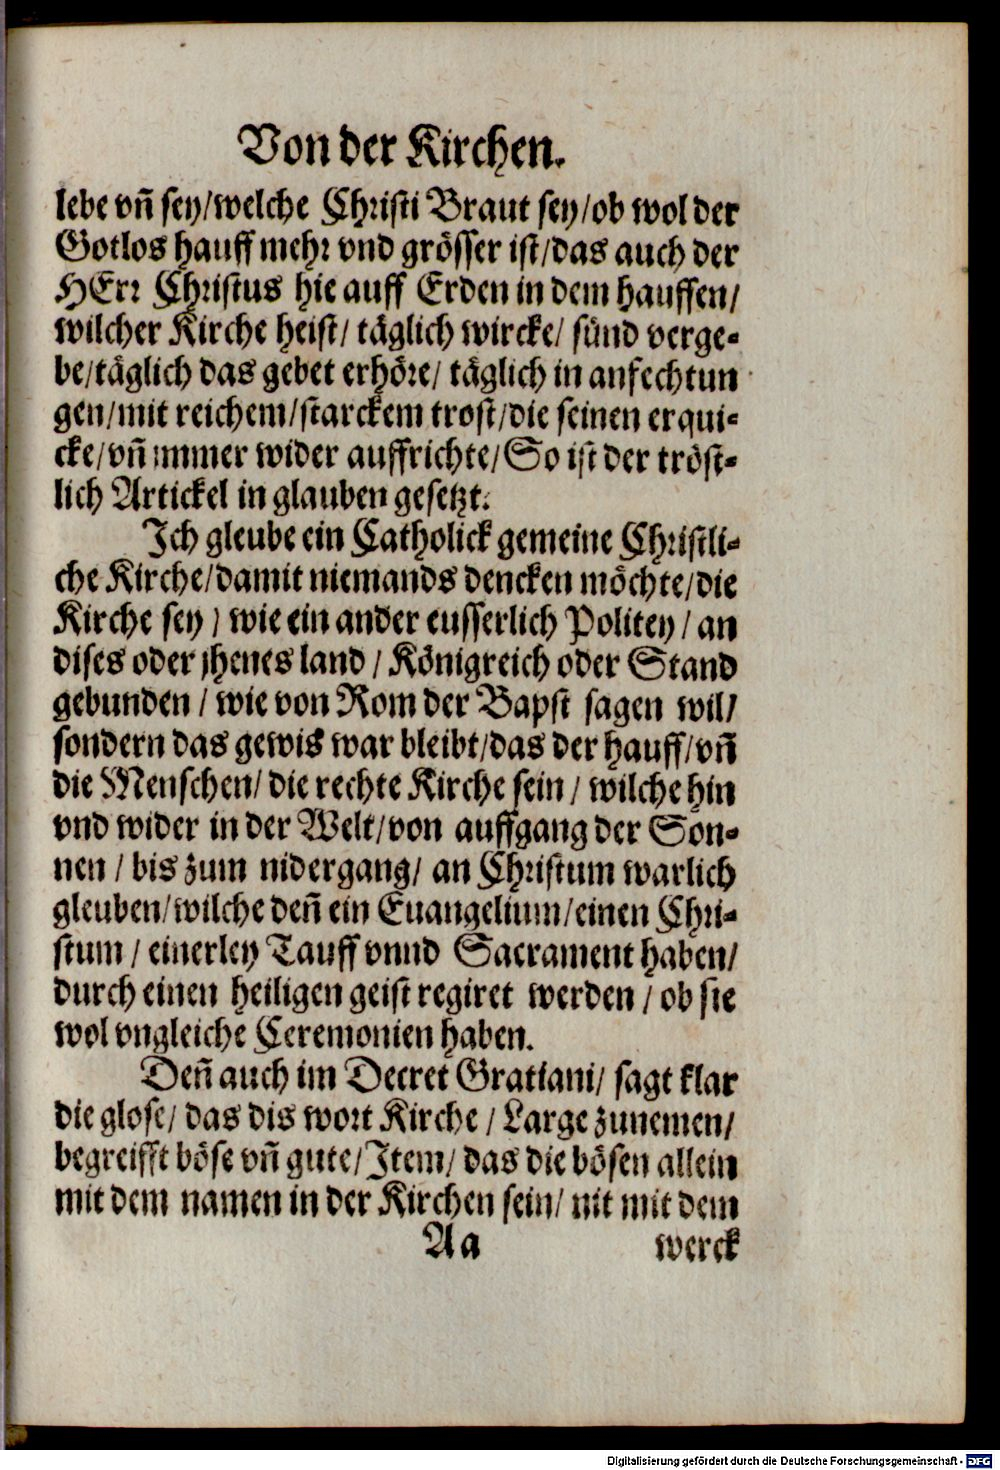 Von der Kirchen.
lebe vñ sey/welche Christi Braut sey/ob wol der
Gotlos hauff mehr vnd grösser ist/das auch der
HErr Christus hie auff Erden in dem hauffen/
wilcher Kirche heist/ täglich wircke/ sünd verge-
be/täglich das gebet erhöre/ täglich in anfechtun
gen/mit reichem/starckem trost/die seinen erqui-
cke/vñ immer wider auffrichte/So ist der tröst-
lich Artickel in glauben gesetzt.
Ich gleube ein Catholick gemeine Christli-
che Kirche/damit niemands dencken möchte/die
Kirche sey / wie ein ander eusserlich Politey / an
dises oder jhenes land / Königreich oder Stand
gebunden / wie von Rom der Bapst sagen wil/
sondern das gewis war bleibt/das der hauff/vñ
die Menschen/ die rechte Kirche sein / wilche hin
vnd wider in der Welt/von auffgang der Son-
nen / bis zum nidergang/ an Christum warlich
gleuben/wilche deñ ein Euangelium/einen Chri-
stum / einerley Tauff vnnd Sacrament haben/
durch einen heiligen geist regiret werden / ob sie
wol vngleiche Ceremonien haben.
Deñ auch im Decret Gratiani/ sagt klar
die glose/ das dis wort Kirche / Large zunemen/
begreifft böse vñ gute/Item/ das die bösen allein
mit dem namen in der Kirchen sein/ nit mit dem
Aa werck
Digitalisierung gefördert durch die Deutsche Forschungsgemeinschaft - DFG